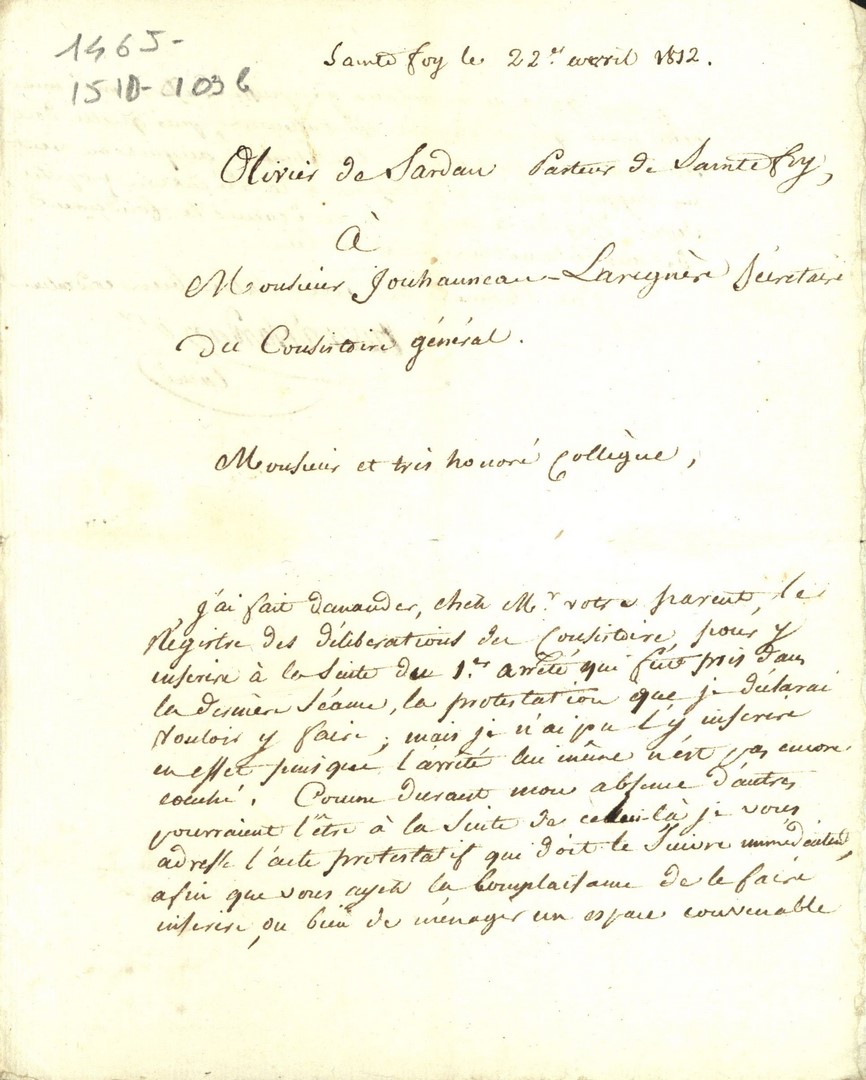 1465-
151D-103b
Sainte foy le 22.e avril 1812.
Olivier de Sardan Pasteur de Sainte foy,
À
Monsieur Jouhanneau-Laregnère Sécretaire
du Consistoire général.
Monsieur et très honoré Collègue,
j'ai fait demander, chez Mr votre parent, le
Régistre des déliberations du Consistoire pour y
inserire à la suite du 1.er arrêté qui fut pris dans
la dernière séance, la protestation que je déclarai
vouloir y faire ; mais je n'ai pu l'y inserire
en effet puisque l'arrêté lui même n'est pas encore
couché. Comme durant mon absence d'autres
pourraient l'être à la suite de celui-là je vous
adresse l'acte protestatif qui doit le suivre immédiatemt,
afin que vous ayez la complaisance de le faire
inserire, ou bien de ménager un espace convenable